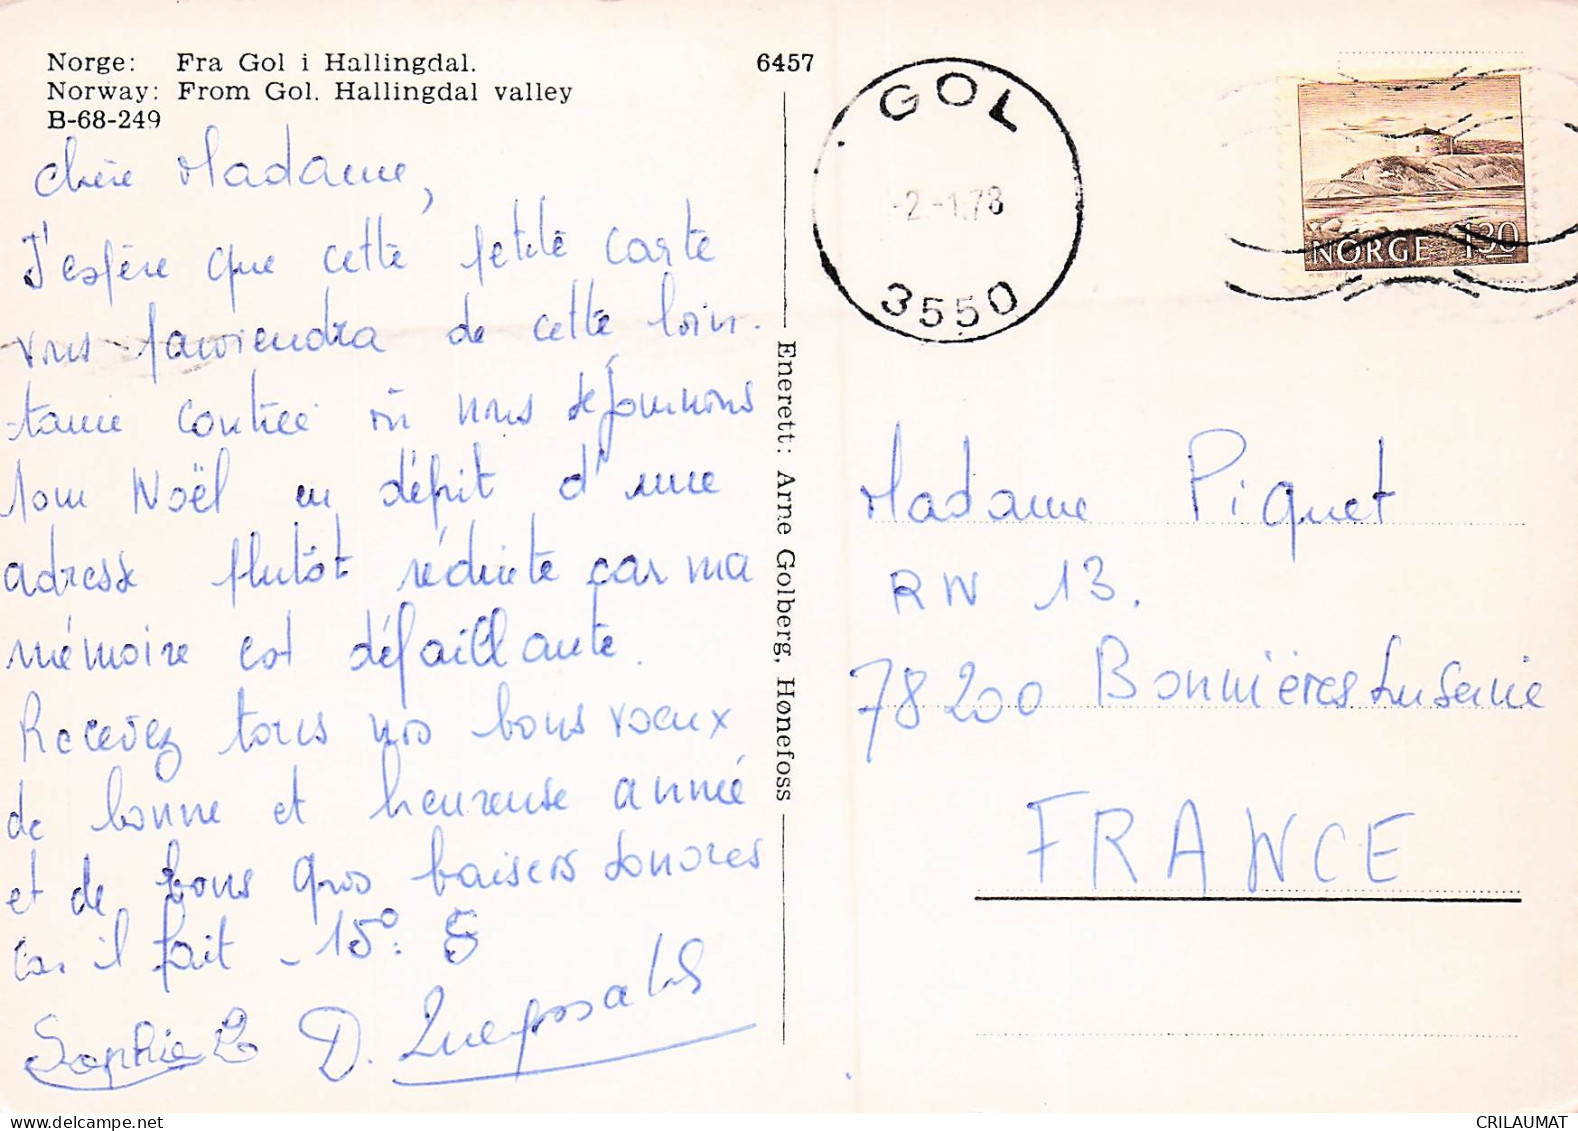 Norge: Fra Gol i Hallingdal.
Norway: From Gol. Hallingdal valley
B-68-249
6457
Chère Madame,
J'espère que cette petite carte
vous parviendra de cette loin-
taine contrée où nous séjournons
pour Noël en dépit d'une
adresse plutôt réduite car ma
mémoire est défaillante.
Recevez tous nos bons voeux
de bonne et heureuse année
et de bons gros baisers sonores
car il fait -15°.
Sophie
D.
Enerett: Arne Golberg, Hønefoss
GOL
-2-1.78
3550
NORGE 130
Madame Piquet
RN 13.
78200 Bonnières sur Seine
FRANCE
CRILAUMAT